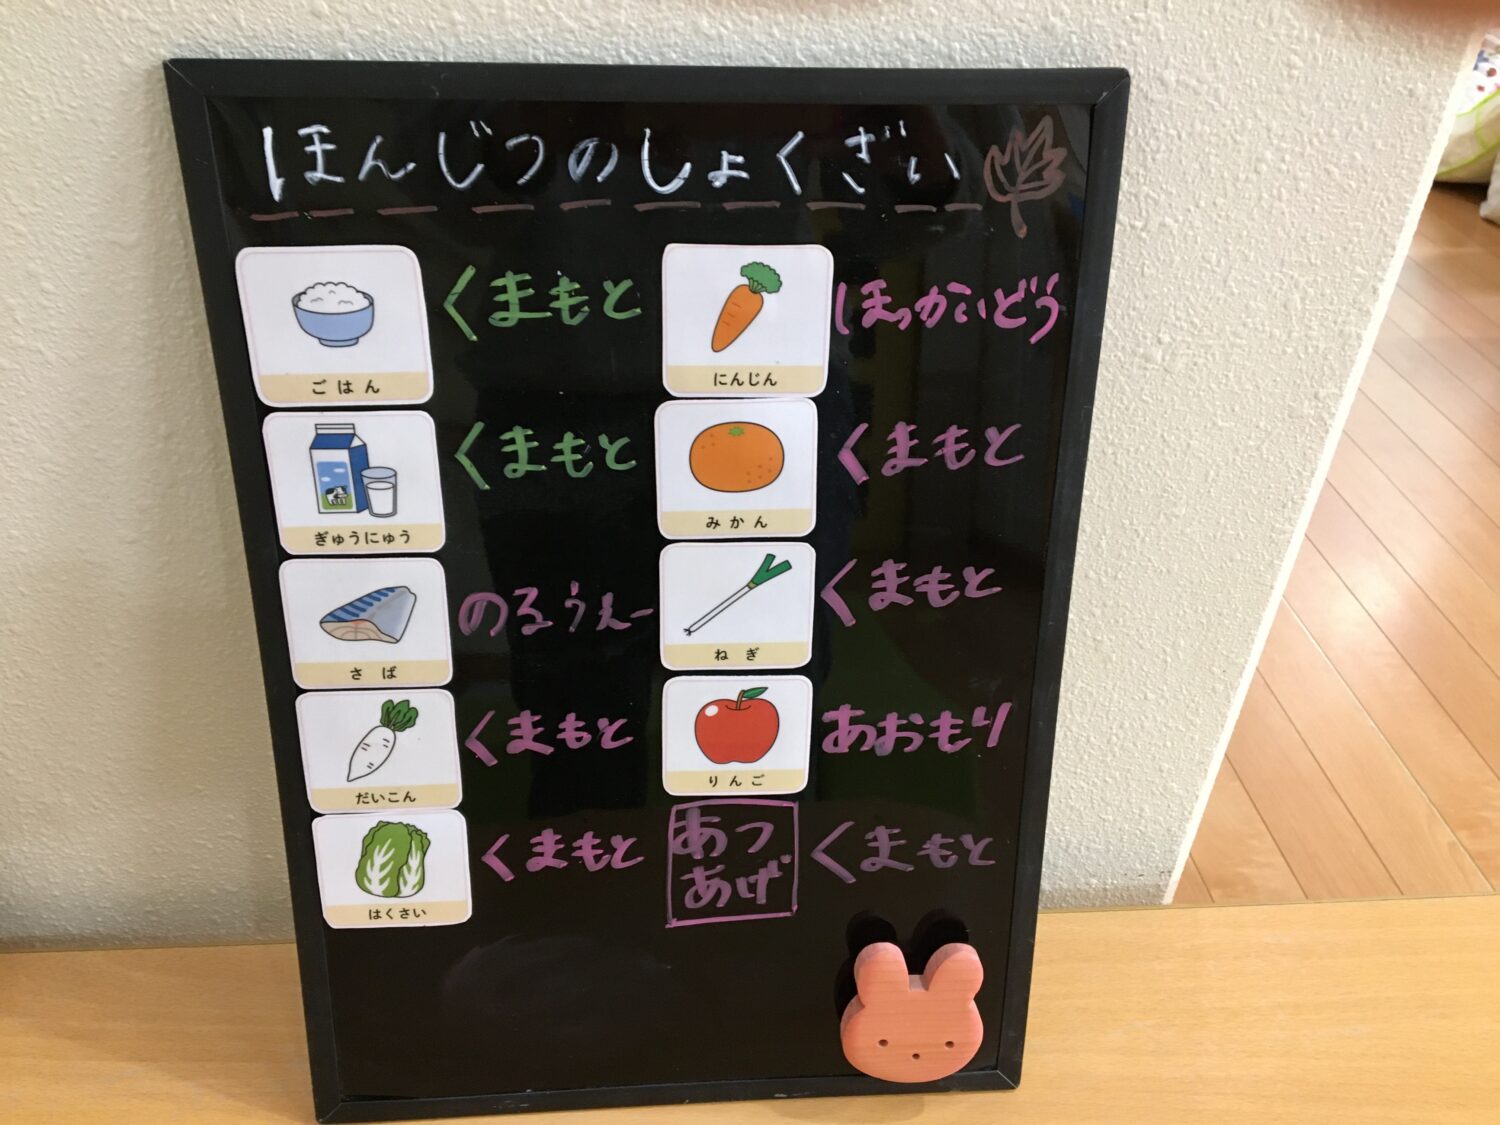 ほんじつのしょくざい
ごはん
くまもと
ぎゅうにゅう
くまもと
さば
のるうぇー
だいこん
くまもと
はくさい
くまもと
にんじん
ほっかいどう
みかん
くまもと
ねぎ
くまもと
りんご
あおもり
あつ
あげ
くまもと